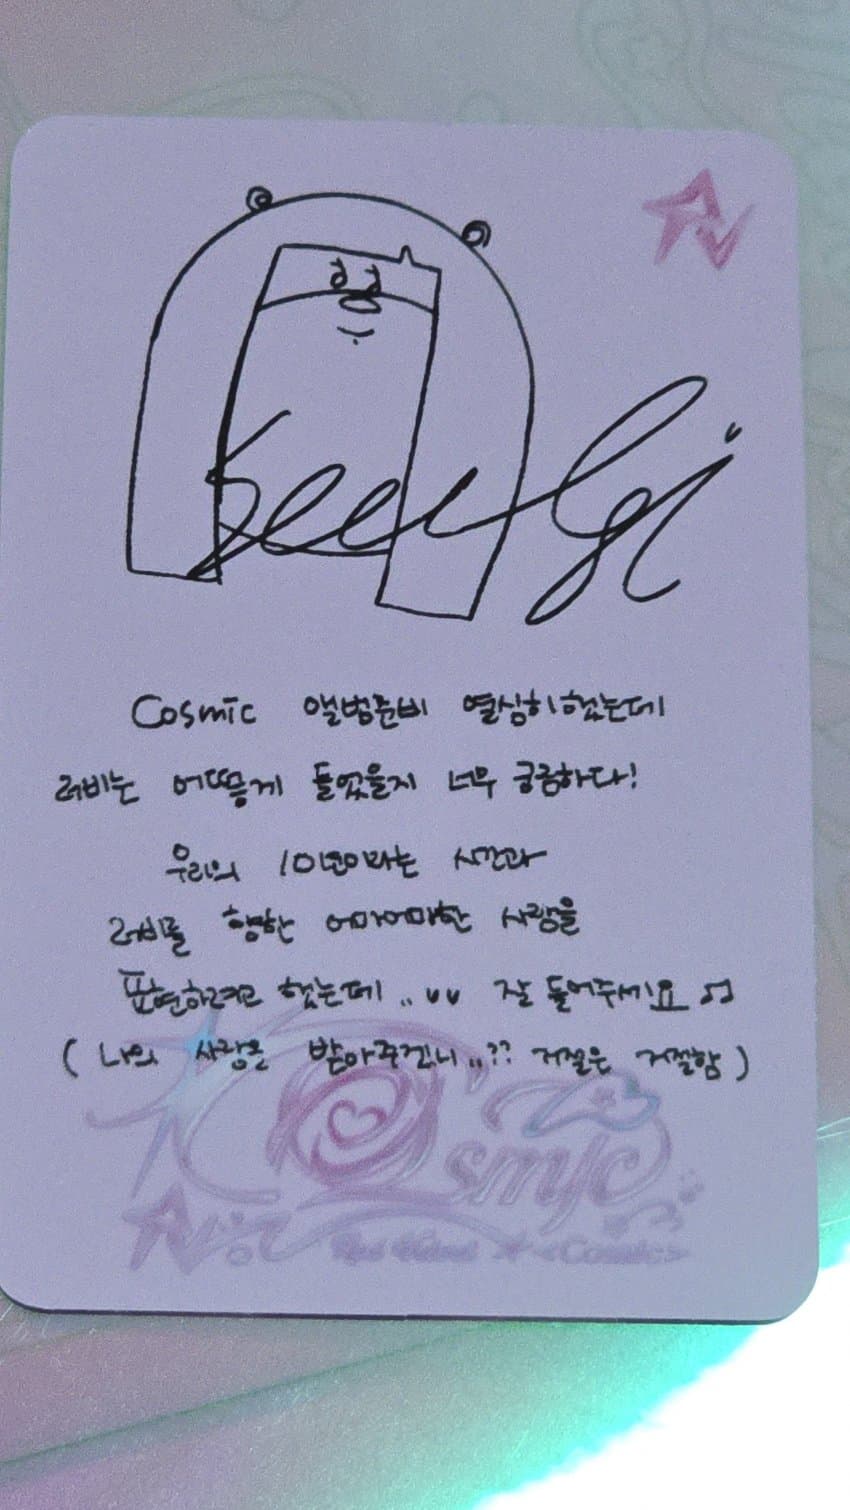 Seulgi
Cosmic 앨범준비 열심히했는데
러비는 어떠케 들었을지 너무 궁금하다!
우리의 10년이라는 시간과
러비를 향한 어마어마한 사랑을
표현하려고 했는데..ㅠㅠ 잘 들어주세요♫
(나의 사랑을 받아주겠니..?? 거절은 거절함)
Cosmic
Red Velvet